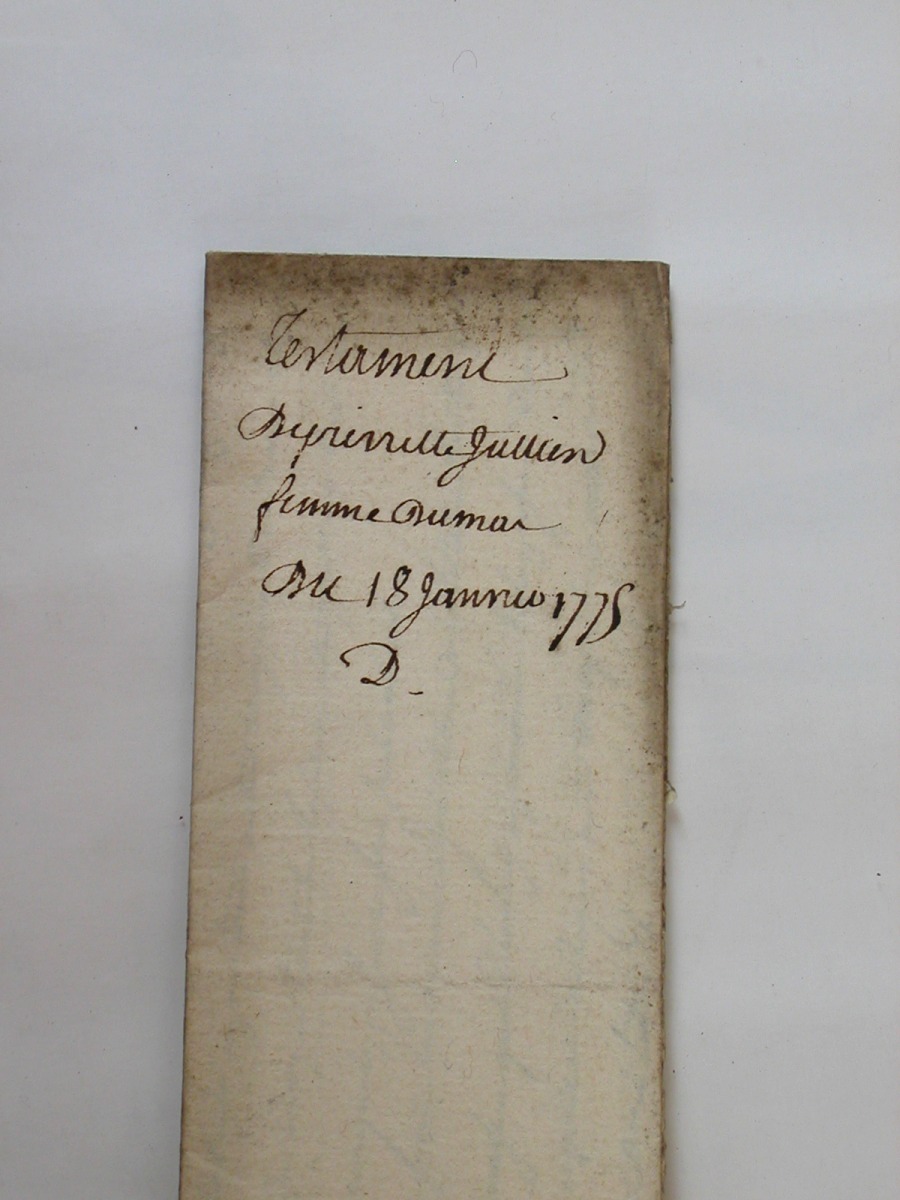 Testament
De pierrette Jullien
femme Dumas
Du 18 Janvier 1775
D